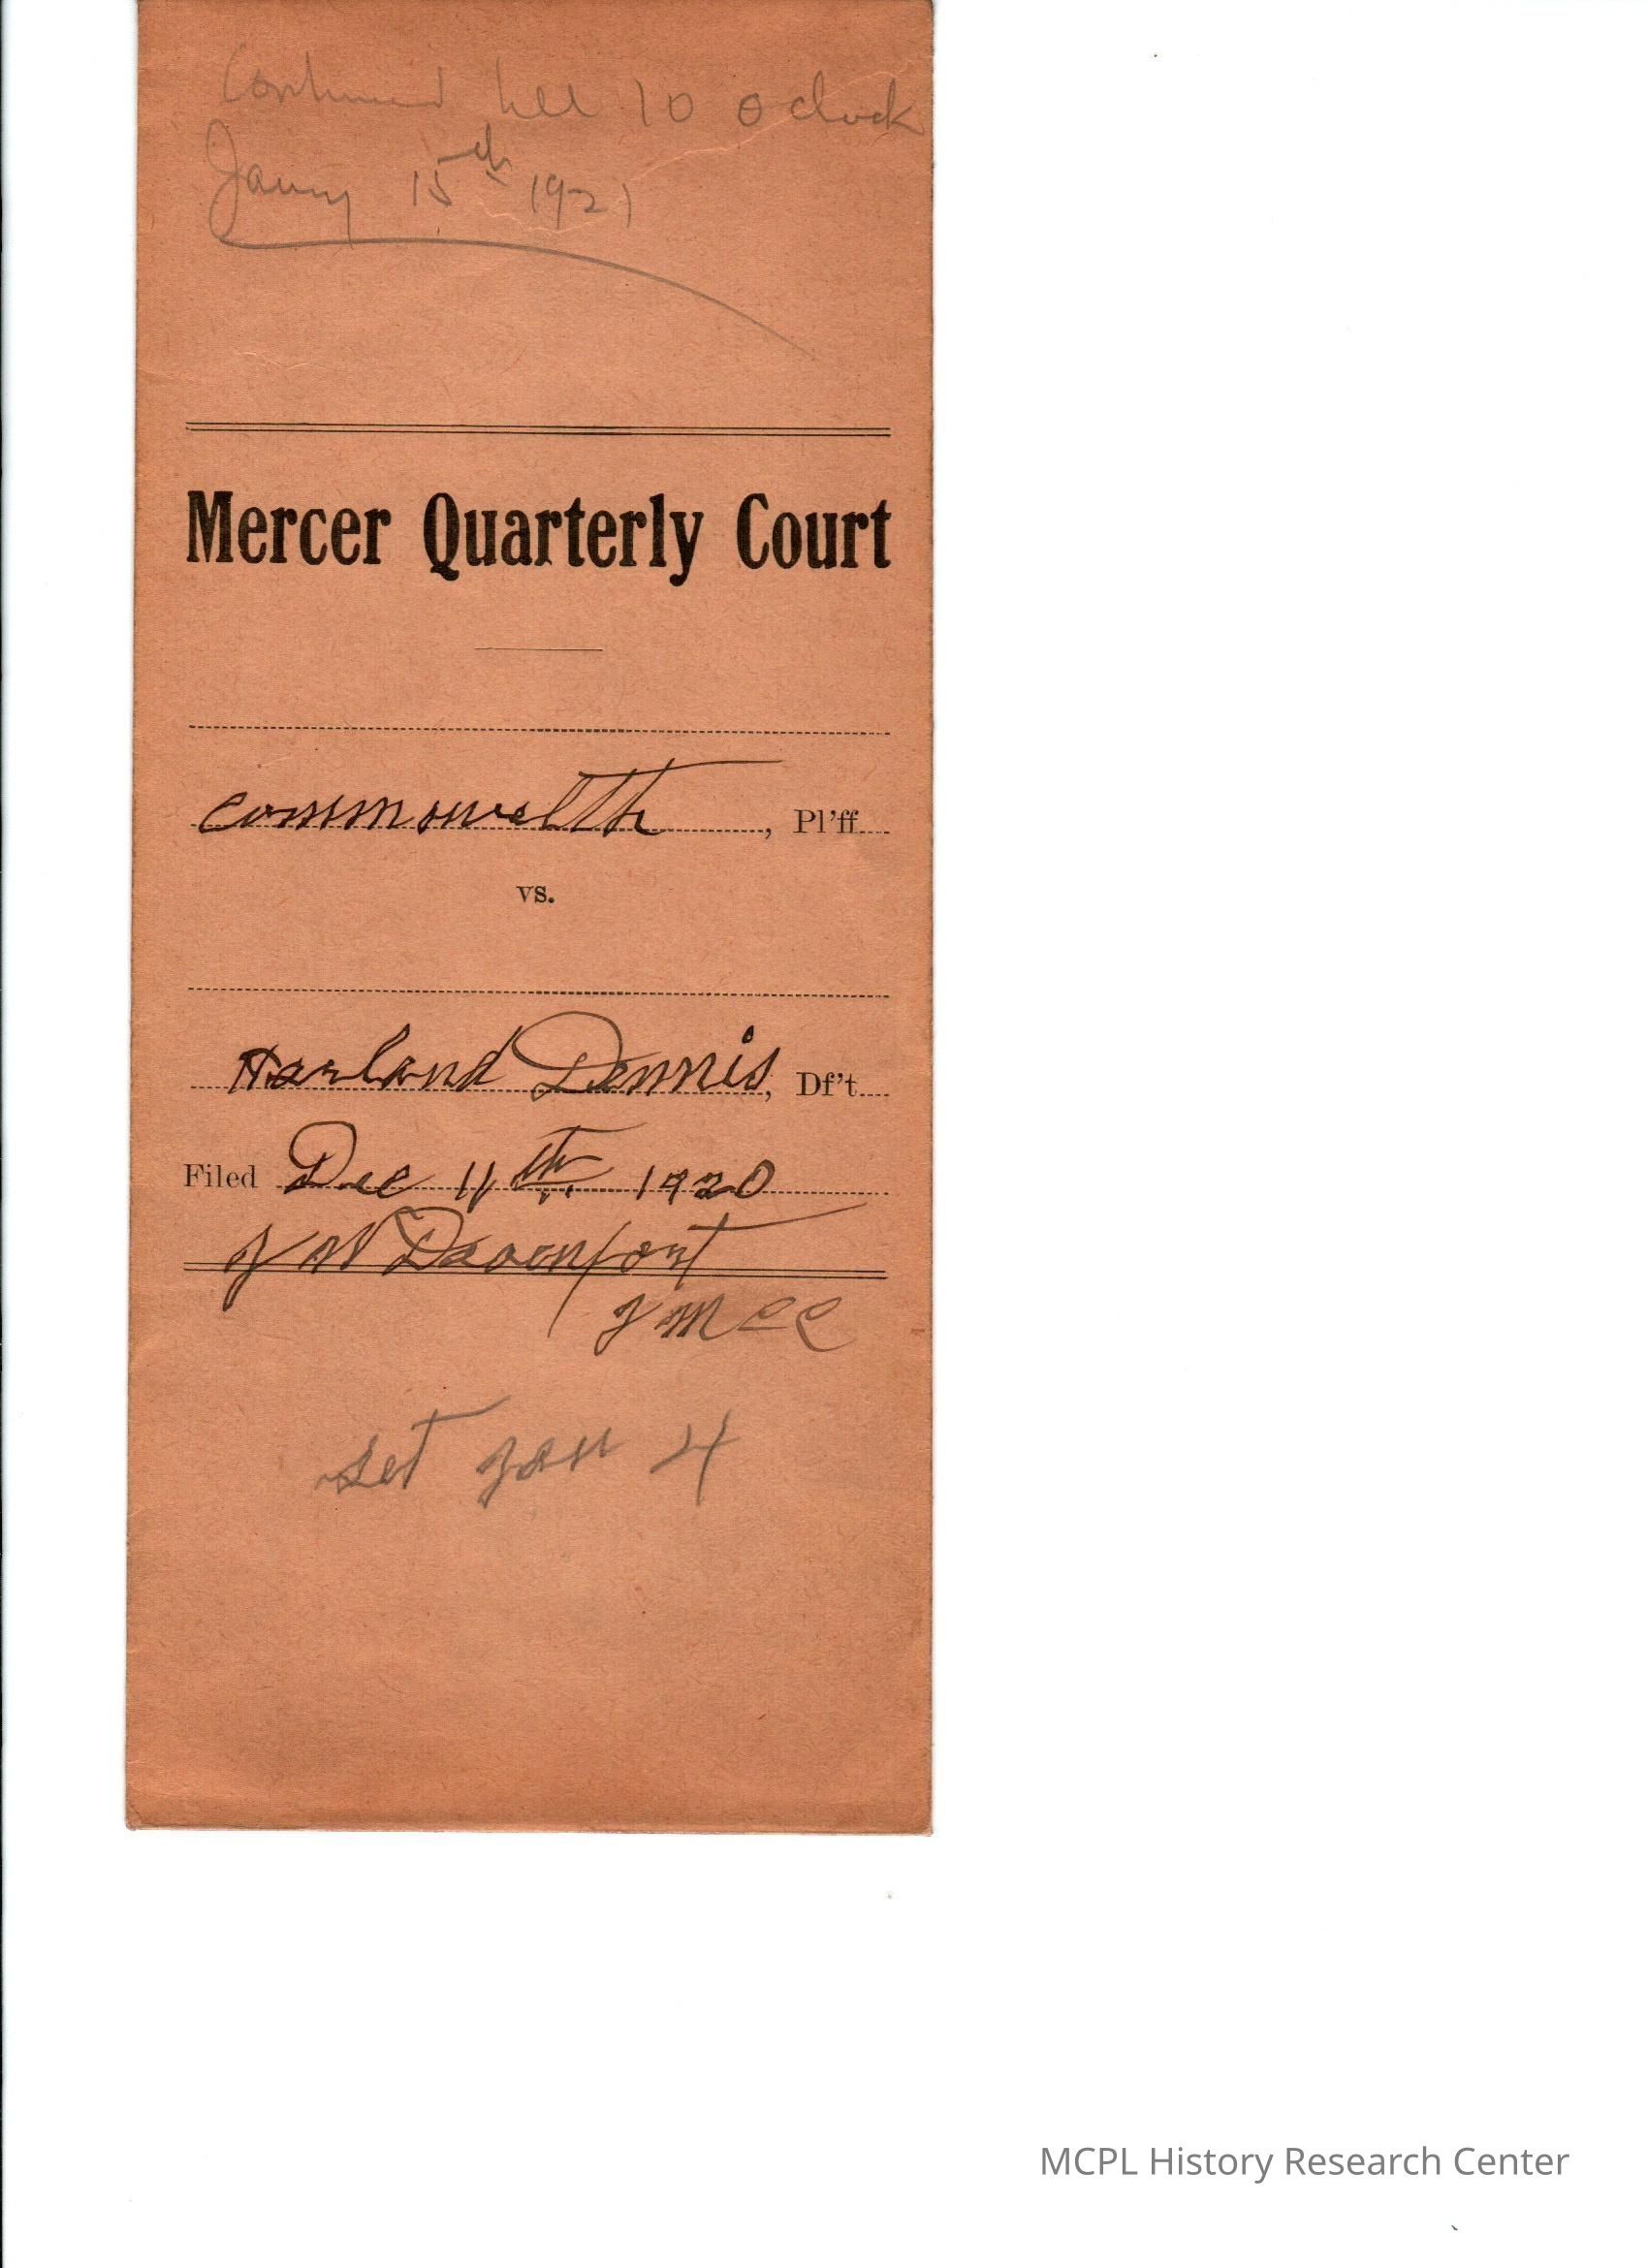 Continued till 10 o clock
Jany 15th 1921
Mercer Quarterly Court
Commonwelth, Pl'ff
vs.
Harland Dennis, Df't
Filed Dec 11th 1920
J W Davenport
J M C C
set Jan 4
MCPL History Research Center